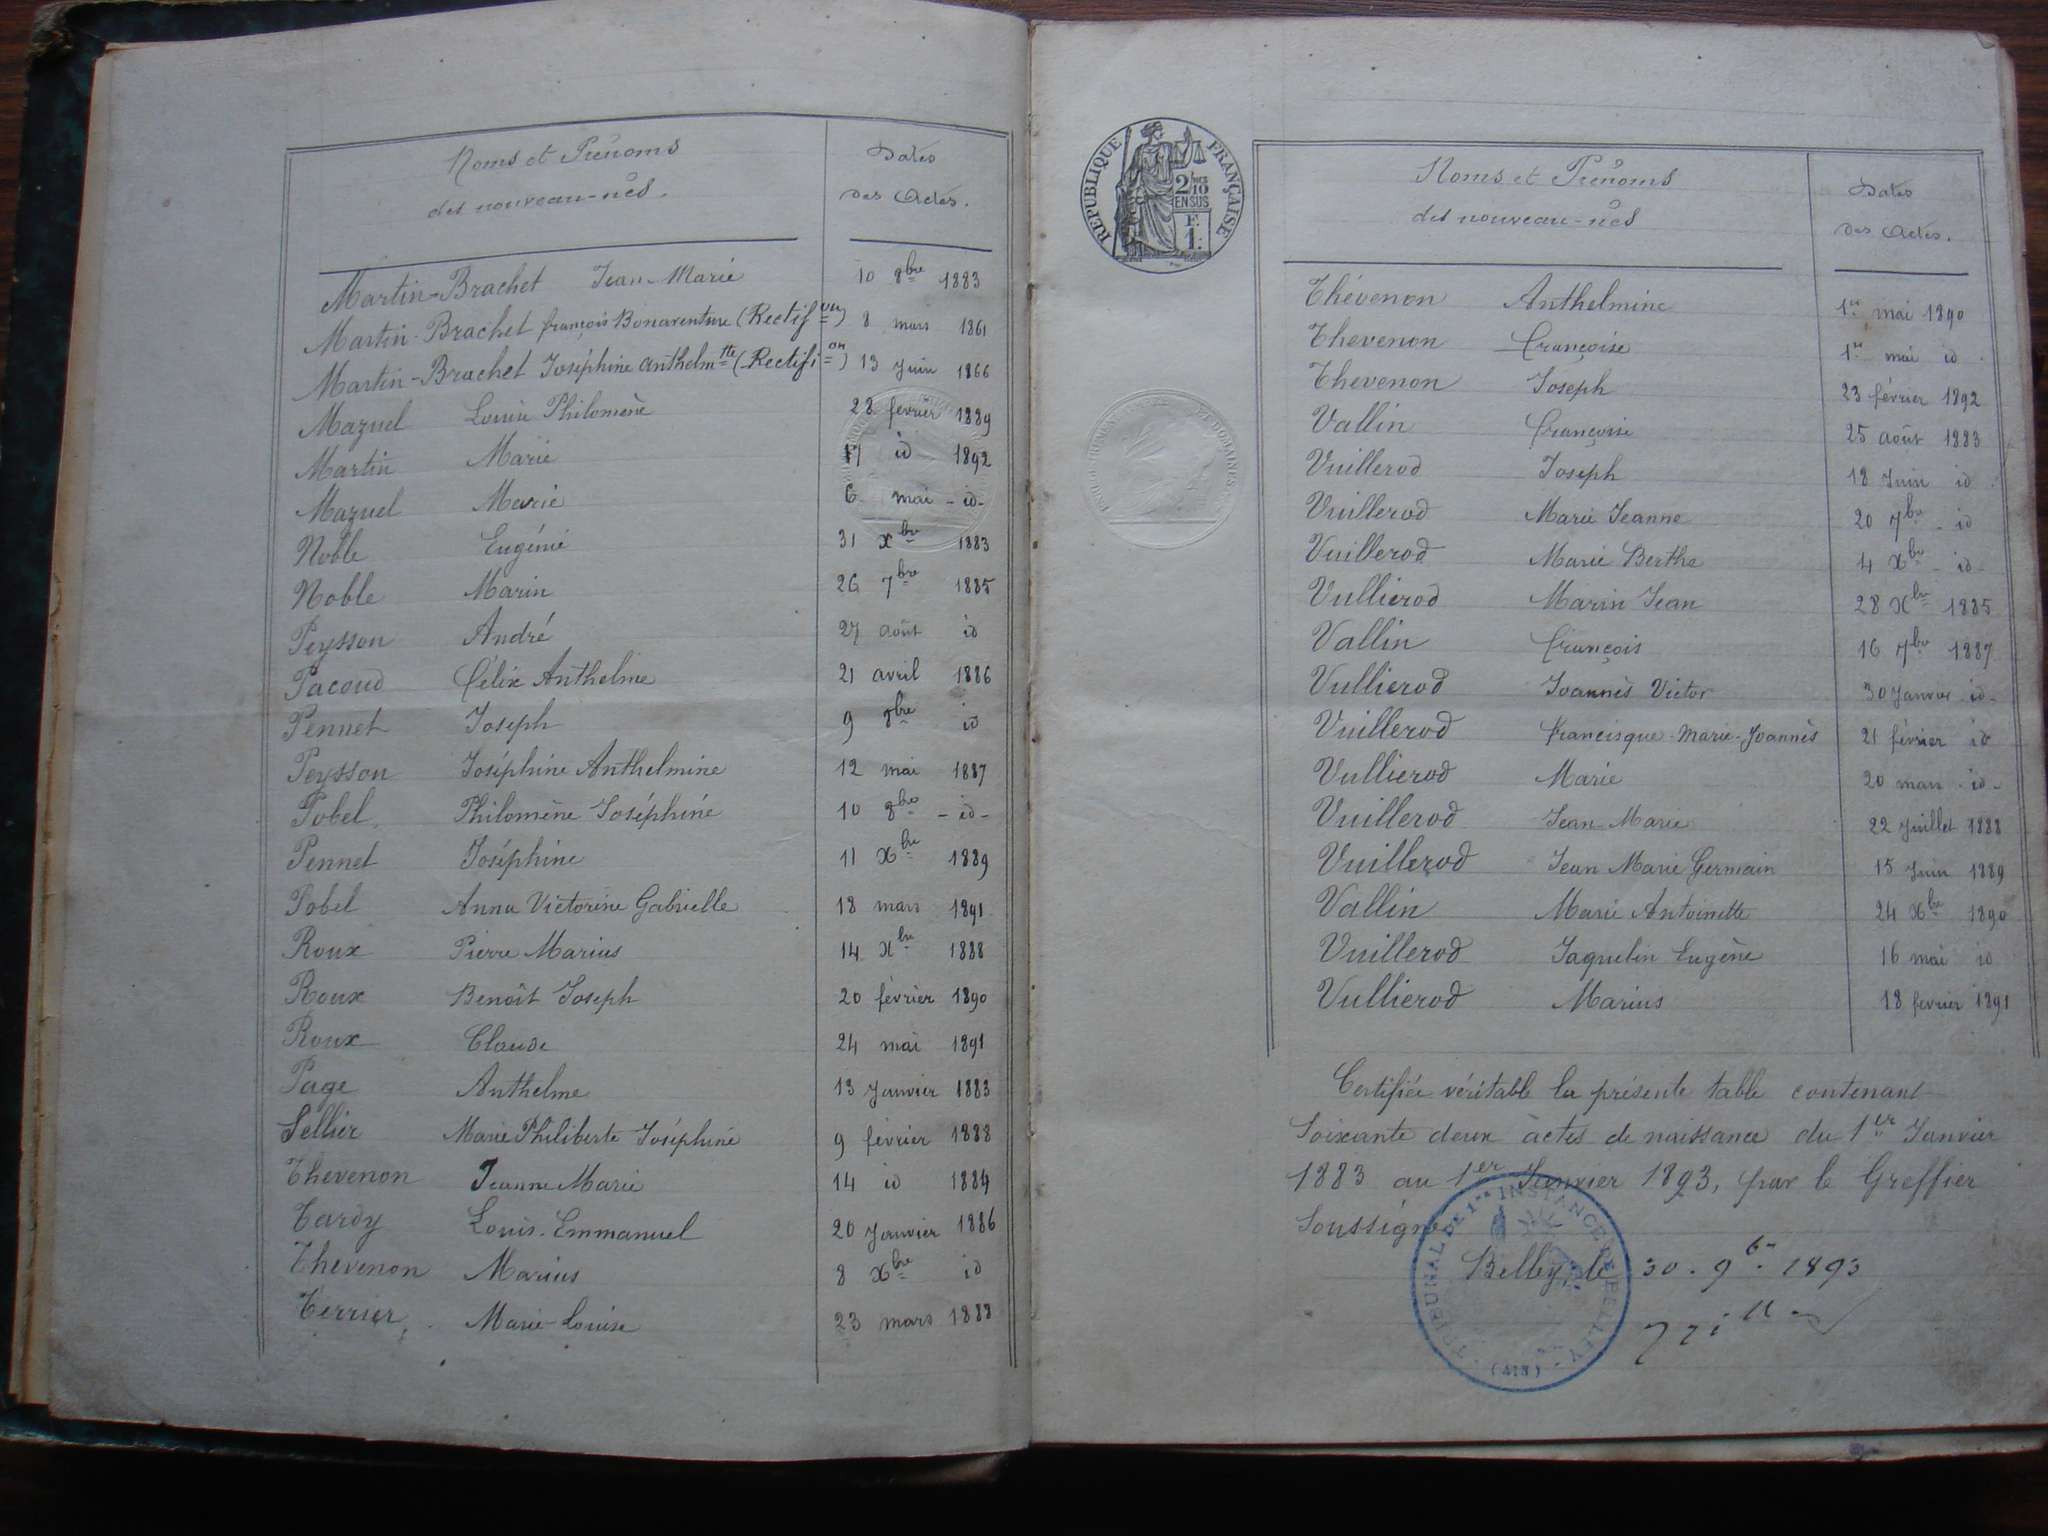 Noms et Prénoms Dates
des nouveau-nés. des Actes.
Martin-Brachet Jean-Marie 10 8bre 1883
Martin-Brachet françois Bonaventure (Rectifon) 8 mars 1861
Martin-Brachet Joséphine Anthelmtte (Rectifion) 13 Juin 1866
Mazuel Louise Philomène 28 février 1889
Martin Marie 17 id 1892
Mazuel Marie 6 mai -id-
Noble Eugénie 31 Xbre 1883
Noble Marin 26 7bre 1885
Peysson André 27 août id
Pacoud Félix Anthelme 21 avril 1886
Pennet Joseph 9 8bre id
Peysson Joséphine Anthelmine 12 mai 1887
Pobel Philomène Joséphine 10 8bre -id-
Pennet Joséphine 11 Xbre 1889
Pobel Anna Victorine Gabrielle 18 mars 1891
Roux Pierre Marius 14 Xbre 1888
Roux Benoît Joseph 20 février 1890
Roux Claude 24 mai 1891
Page Anthelme 13 Janvier 1883
Sellier Marie Philiberte Joséphine 9 février 1888
Thevenon Jeanne Marie 14 id 1884
Tardy Louis-Emmanuel 20 Janvier 1886
Thevenon Marius 8 Xbre id
Terrier Marie-Louise 23 mars 1888
RÉPUBLIQUE FRANÇAISE
2/10
EN SUS
F.
1.
Noms et Prénoms Dates
des nouveau-nés des Actes.
Thévenon Anthelmine 1er mai 1890
Thevenon Françoise 1er mai id
Thevenon Joseph 23 février 1892
Vallin Françoise 25 août 1883
Vuillerod Joseph 18 Juin id
Vuillerod Marie Jeanne 20 7bre - id
Vuillerod Marie Berthe 4 Xbre - id-
Vullierod Marin Jean 28 Xbre 1885
Vallin François 16 7bre 1887
Vullierod Joannès Victor 30 Janvier -id-
Vuillerod francisque-Marie-Joannès 21 février id
Vullierod Marie 20 mars -id-
Vuillerod Jean-Marie 22 Juillet 1888
Vuillerod Jean Marie Germain 15 Juin 1889
Vallin Marie Antoinette 24 Xbre 1890
Vuillerod Jaquelin Eugène 16 mai id
Vullierod Marius 18 février 1891
Certifiée véritable la présente table contenant
Soixante deux actes de naissance du 1er Janvier
1883 au 1er Janvier 1893, par le Greffier
Soussigné
Belley, le 30. 9bre. 1893
TRIBUNAL DE 1re INSTANCE DE BELLEY
(418)